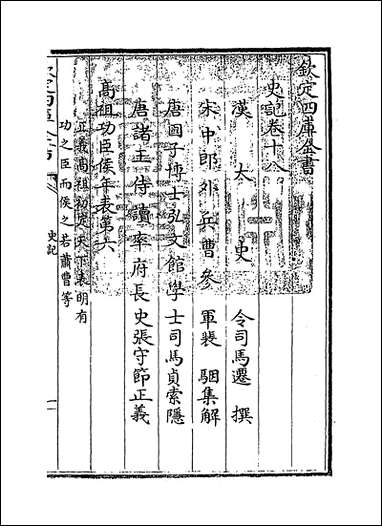 欽定四庫全書
史記卷十八
漢太史令司馬遷撰
宋中郎外兵曹參軍裴駰集解
唐國子博士弘文館學士司馬貞索隱
唐諸王侍讀率府長史張守節正義
高祖功臣侯年表第六
正義高祖初定天下表明有
功之臣而侯之若蕭曹等
史記